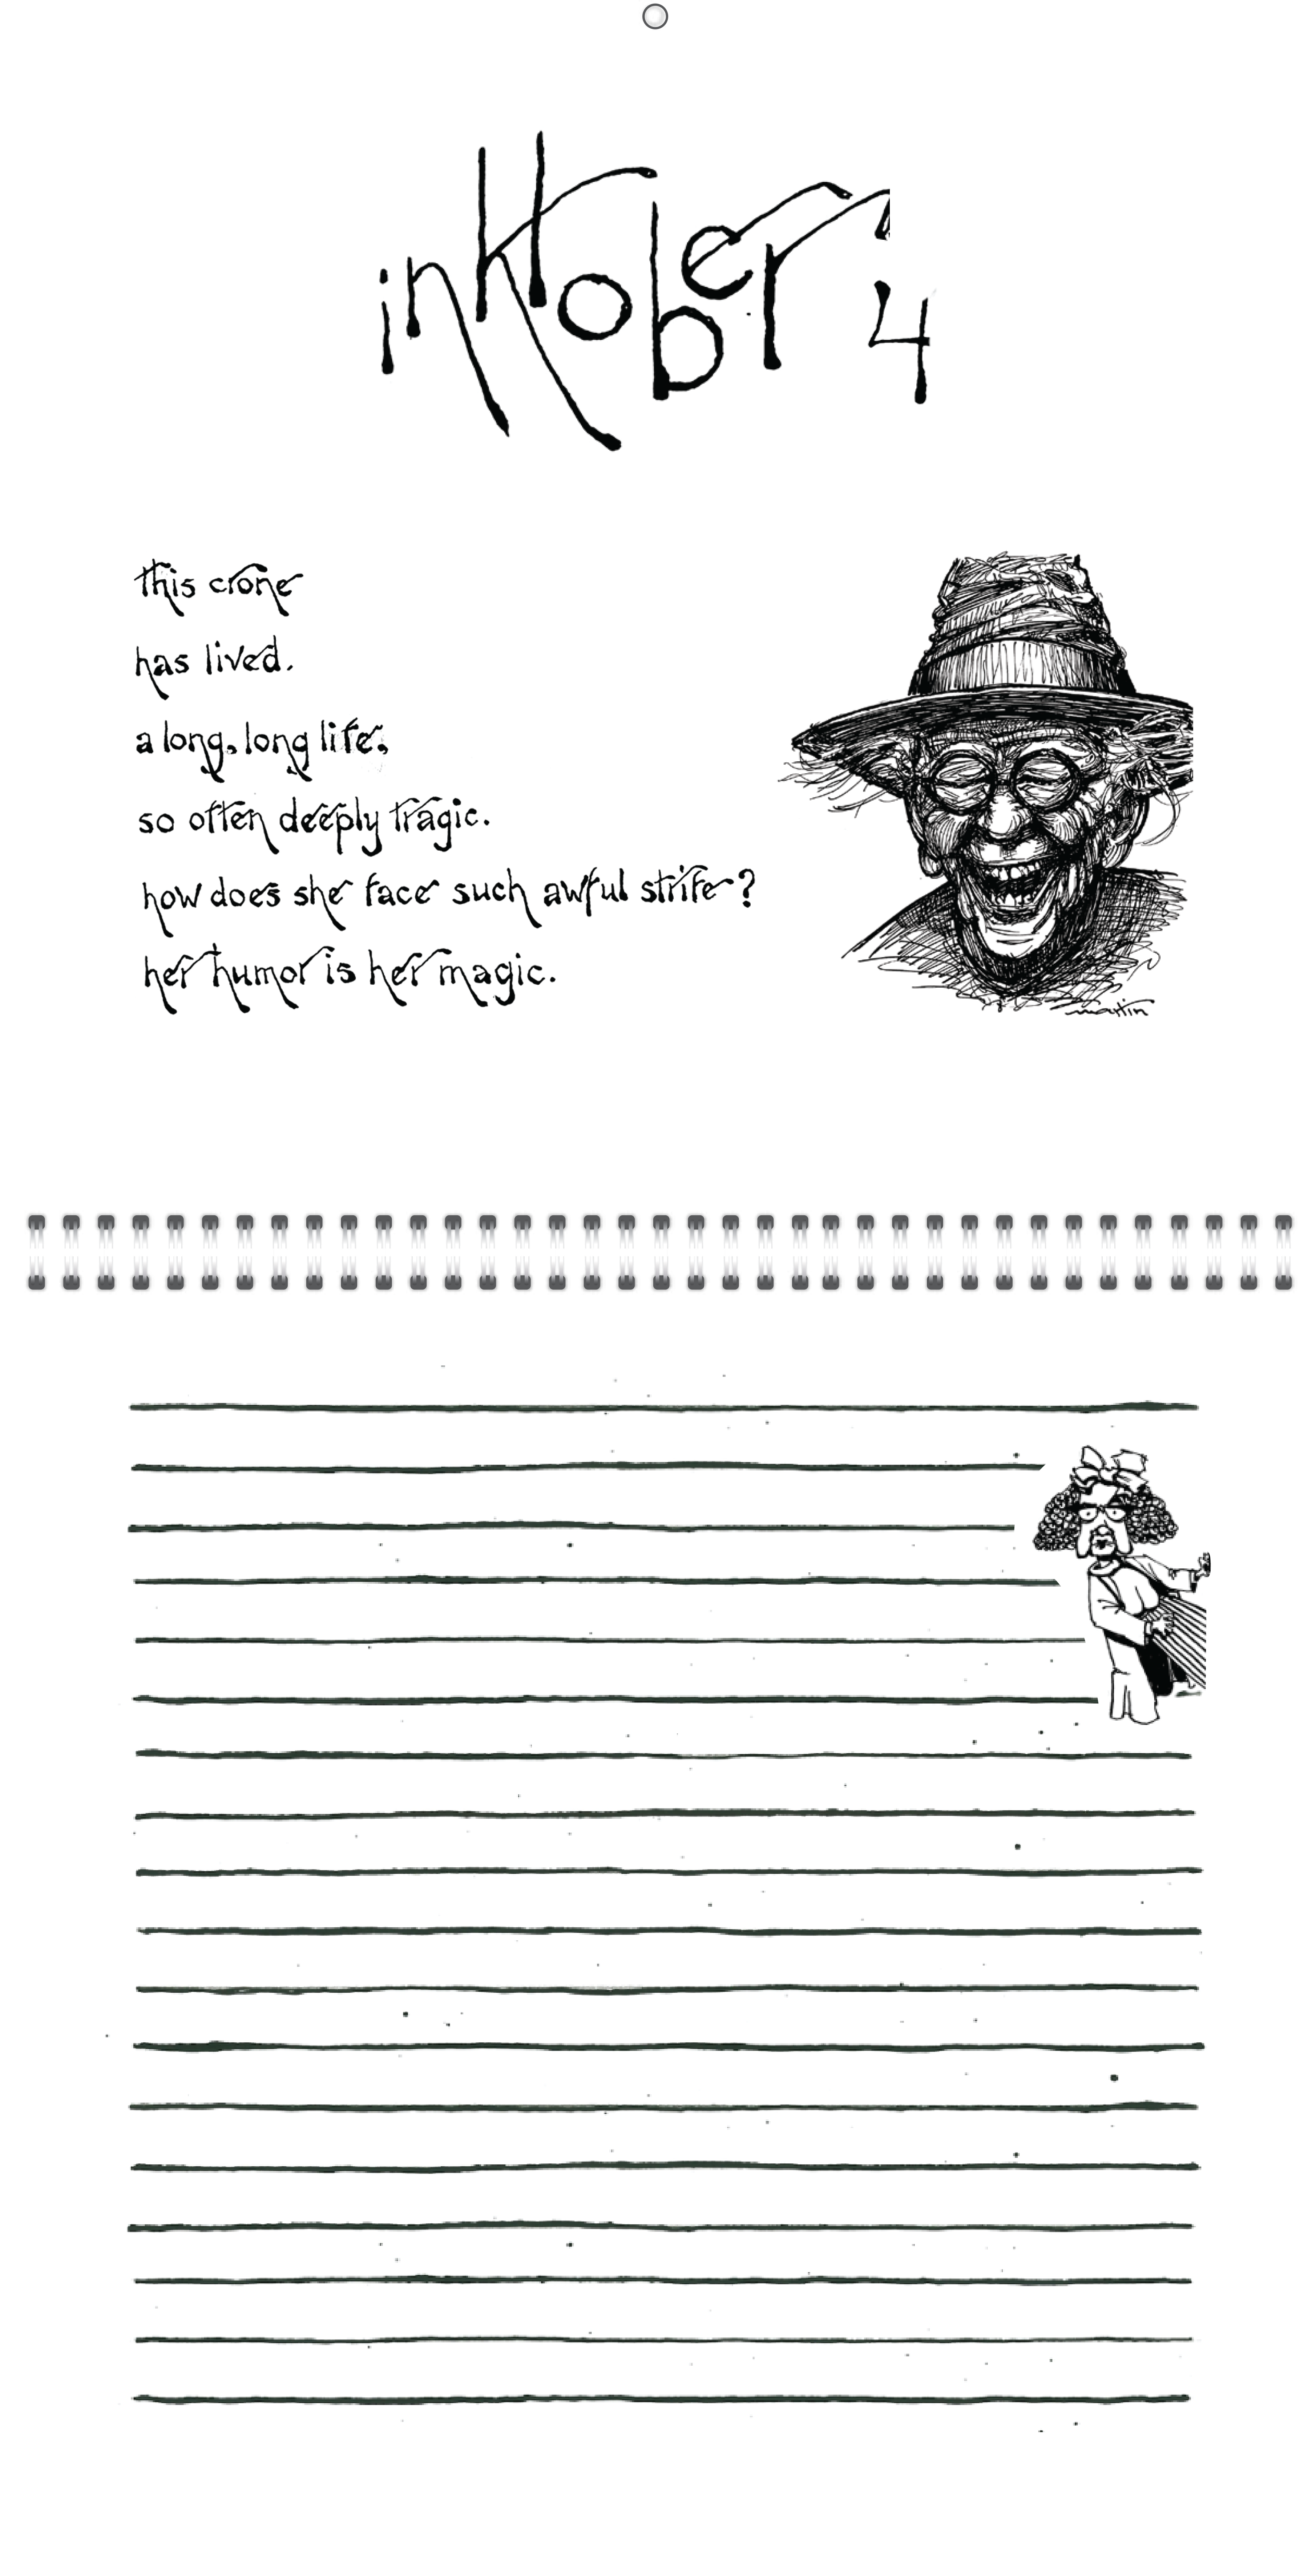 inktober 4
this crone
has lived.
a long, long life,
so often deeply tragic.
how does she face such awful strife?
her humor is her magic.
martin